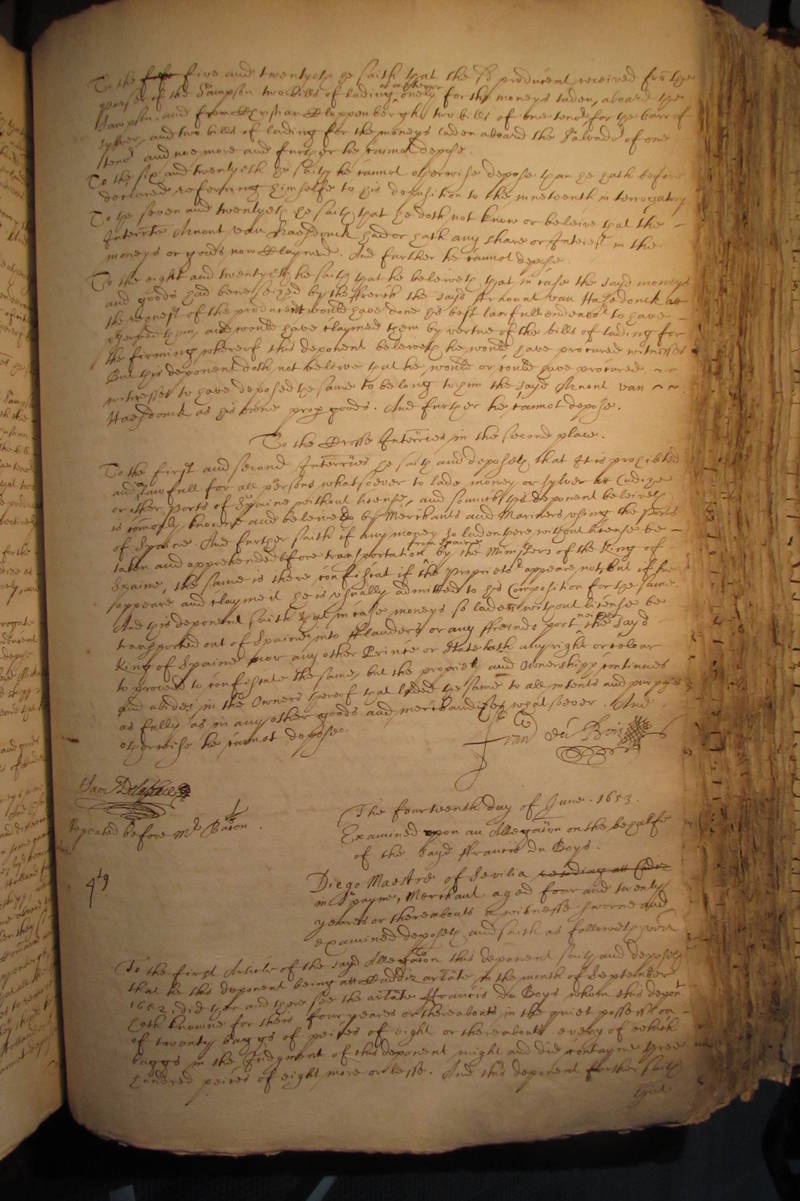 To the five and twentyth he saith that the sd producent received for the
of the Sampson two bills of lading onely for the moneys laden aboard the
Sampson, and from Christian Cloppenbergh two bills of one tenor for the barr of
sylver, and two bills of lading for the moneys laden aboard the Salvador of one
tenor and noe more and further he cannot depose.
To the six and twentyth he saith he cannot otherwise depose than he hath before
declared referring himselfe to his deposition to the nineteenth interrogatory
To the seven and twentyeth he saith that he doth not know or beleive that the
Interrte Arnout van Haesdonck had or hath any share or Interest in the
moneys or goods now Claymed. And further he cannot depose.
To the eight and twentyeth he saith that he beleiveth that in case the sayd moneys
and goods had bene seized by the ffrench the sayd Arnout van Haesdonck att
the request of the producent would have done his best lawfull endeavor to have
them, and would have claymed them by vertue of the bills of lading for
the firming whereof this deponent beleiveth he would have procured witnesses
But this deponent doth not beleive that he would or could have procured
witnesses to have deposed the same to belong to him the sayd Arnout van
Haesdonck as his owne proper goods. And further he cannot depose.
To the Crosse Interries in the second place.
To the first and second Interries he saith and deposeth that It is prohibited
and unlawfull for all persons whatsoever to lade money or sylver at Cadize
or other ports of Spaine without license, and soe much this deponent beleives
is comonly knowne and beleived by Merchants and Mariners using the ports
of Spaine And further saith if any money so laden there without license be
taken and apprehended before transportation from Spaine by the Ministers of the King of
Spaine, the same is there confiscat if the proprietor appeare not, but if he
appeare and clayme it he is usually admitted to his Composition for the same
And this deponent saith that in case moneys so laden without license be
transported out of Spaine into fflanders or any ffreinds port neither the sayd
King of Spaine nor any other Prince or State hath any right or colour
to proceed to confiscate the same, but the propriety and Ownershipp continues
and abides in the Owners thereof that laded the same to all intents and purposes
as fully as in any other goods and merchandizes whatsoever. And
otherwise he cannot depose.
ffran du Bois
Repeated before Mr Bacon.
The fourteenth day of June. 1653.
Examined upon an Allegation on the behalfe
of the sayd ffrancis du Boys.
Diego Maestre of Sevilia
in Spayne, Merchant aged four and twenty
yeares or thereabouts a witnesse sworne and
examined deposeth and saith as followeth vizt
To the first Article of the sayd Allegation this deponent saith and deposeth
that he this deponent being att Caddiz arlate in the month of September
1652 did then and there see the arlate ffrancis du Boys whom this deponent
hath knowne for theis four yeares or thereabouts in the quiet possession
of twenty baggs of peices of eight or thereabouts every of which
baggs in the Judgment of this deponent might and did contayne three
hundred peices of eight more or lesse. And this deponent further saith
that